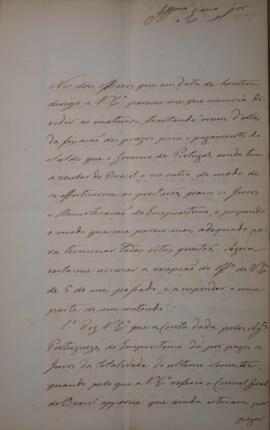 Illmo e Exmo Sor
Nos dois officios que em data de hontem
dirigi a V. Exa. pareceo me que convinha di-
vidir as materias, tractando n'um d'elles
da fixação dos prazos para o pagamento do
Saldo que o Governo de Portugal ainda tem
a receber do Brasil e no outro do modo de
se effectuarem as prestações para os Juros
e Amortisação do Emprestimo, e propondo
o modo que me parece mais adequado pa-
ra terminar todas estas questões. Agora
resta-me accusar a recepção do Offo. de V. Exa.
de 5 do mez passado, e a responder a uma
parte do seu contheudo:
1.º Diz V. Exa. que a Conta dada pelos Agtes
Portuguezes do Emprestimo dá por pagos os
Juros da totalidade do ultimo Semestre,
quando pelo que a V. Exa. referio o Consul Geral
do Brasil apparece que ainda estavam por
pagar